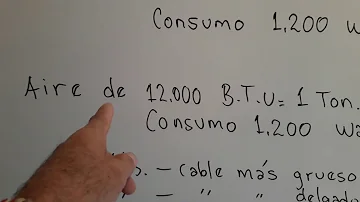 Consumo 1,200
Aire de 12,000 B.T.U = 1 Ton.
Consumo 1,200
— Cable más grueso
— " "